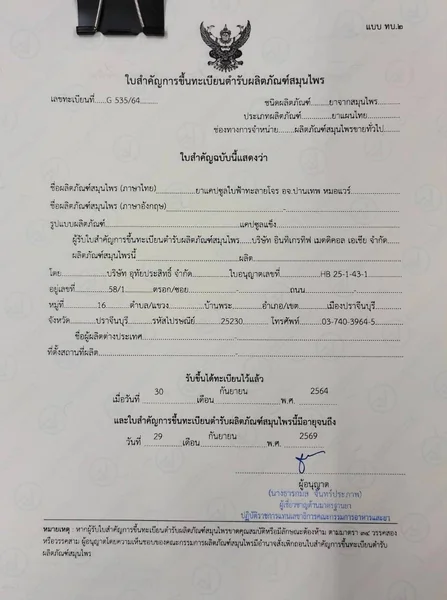 แบบ ทบ.๒
ใบสำคัญการขึ้นทะเบียนตำรับผลิตภัณฑ์สมุนไพร
เลขทะเบียนที่.....G 535/64.......... ชนิดผลิตภัณฑ์..........ยาจากสมุนไพร............
ประเภทผลิตภัณฑ์............ยาแผนไทย............
ช่องทางการจำหน่าย.......ผลิตภัณฑ์สมุนไพรขายทั่วไป......
ใบสำคัญฉบับนี้แสดงว่า
ชื่อผลิตภัณฑ์สมุนไพร (ภาษาไทย)..............ยาแคปซูลใบฟ้าทะลายโจร อจ.ปานเทพ หมอแวร์
ชื่อผลิตภัณฑ์สมุนไพร (ภาษาอังกฤษ)..............-..............
รูปแบบผลิตภัณฑ์..............แคปซูลแข็ง..............
ผู้รับใบสำคัญการขึ้นทะเบียนตำรับผลิตภัณฑ์สมุนไพร.....บริษัท อินทิเกรทีฟ เมดดิคอล เอเชีย จำกัด......
ผลิตภัณฑ์สมุนไพรนี้..............ผลิต..............
โดย..............บริษัท อุทัยประสิทธิ์ จำกัด............ใบอนุญาตเลขที่..............HB 25-1-43-1............
อยู่เลขที่............58/1............ตรอก/ซอย............-............ถนน............-............
หมู่ที่............16............ตำบล/แขวง............บ้านพระ............อำเภอ/เขต............เมืองปราจีนบุรี............
จังหวัด.........ปราจีนบุรี.........รหัสไปรษณีย์.........25230.........โทรศัพท์.........03-740-3964-5.........
ชื่อผู้ผลิตต่างประเทศ..............-..............
ที่ตั้งสถานที่ผลิต..............-..............
รับขึ้นได้ทะเบียนไว้แล้ว
เมื่อวันที่.......30.......เดือน.......กันยายน.......พ.ศ. .......2564.......
และใบสำคัญการขึ้นทะเบียนตำรับผลิตภัณฑ์สมุนไพรนี้มีอายุจนถึง
วันที่.......29.......เดือน.......กันยายน.......พ.ศ. .......2569.......
ผู้อนุญาต
ผู้เชี่ยวชาญด้านมาตรฐานยา
ปฏิบัติราชการแทนเลขาธิการคณะกรรมการอาหารและยา
หมายเหตุ : หากผู้รับใบสำคัญการขึ้นทะเบียนตำรับผลิตภัณฑ์สมุนไพรขาดคุณสมบัติหรือมีลักษณะต้องห้าม ตามมาตรา ๓๔ วรรคสอง
หรือวรรคสาม ผู้อนุญาตโดยความเห็นชอบของคณะกรรมการผลิตภัณฑ์สมุนไพรมีอำนาจสั่งเพิกถอนใบสำคัญการขึ้นทะเบียนตำรับ
ผลิตภัณฑ์สมุนไพร